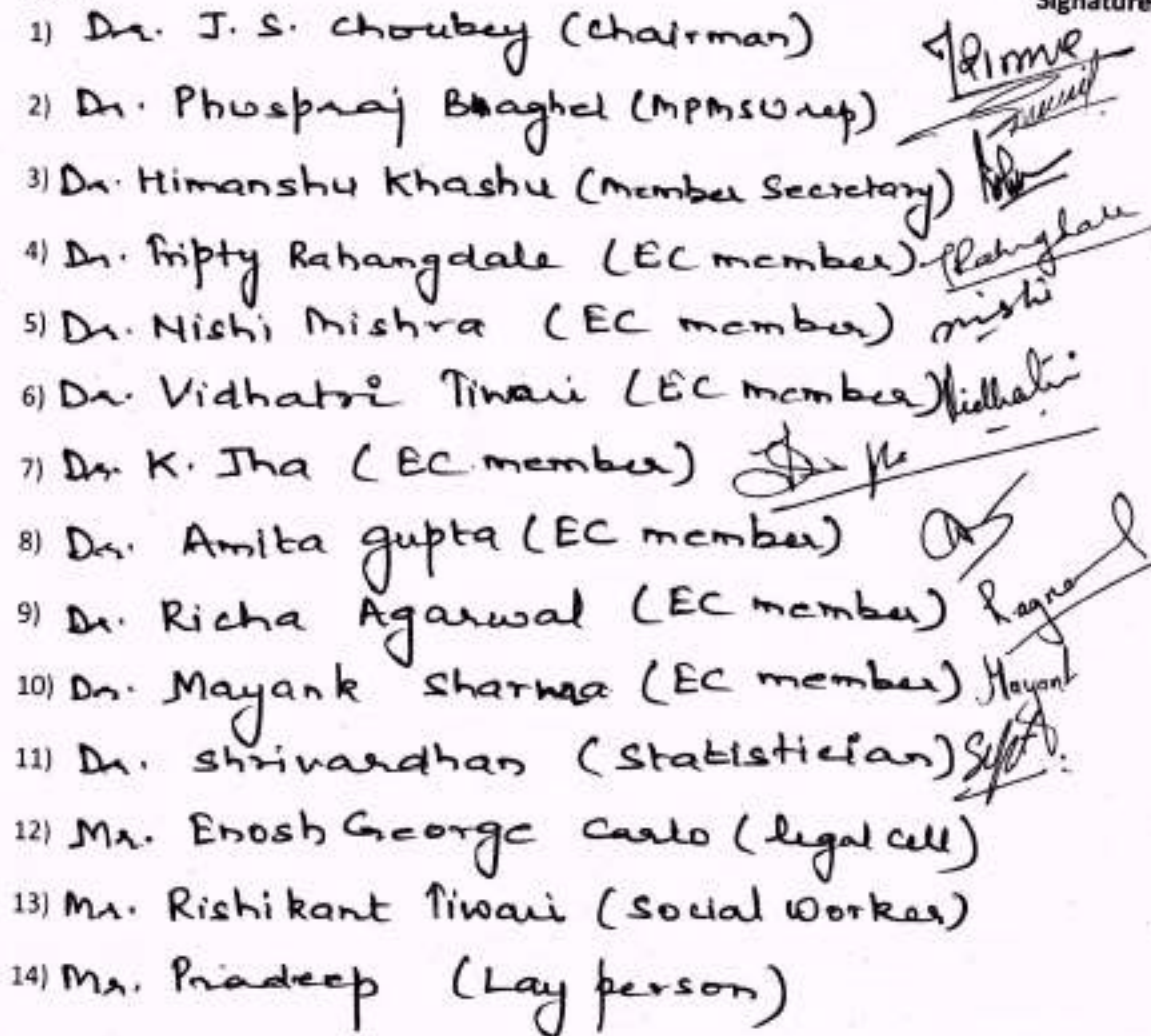 Signature
1) Dr. J. S. Choubey (Chairman)
2) Dr. Phuspraj Bhaghel (MPMSU rep)
3) Dr. Himanshu Khashu (Member Secretary)
4) Dr. Tripty Rahangdale (EC member)
5) Dr. Nishi Mishra (EC member) Nishi
6) Dr. Vidhatri Tiwari (EC member) Vidhatri
7) Dr. K. Jha (EC member)
8) Dr. Amita gupta (EC member)
9) Dr. Richa Agarwal (EC member)
10) Dr. Mayank Sharma (EC member) Mayank
11) Dr. Shrivardhan (Statistician)
12) Mr. Enosh George Carlo (legal cell)
13) Mr. Rishikant Tiwari (Social Worker)
14) Mr. Pradeep (Lay person)